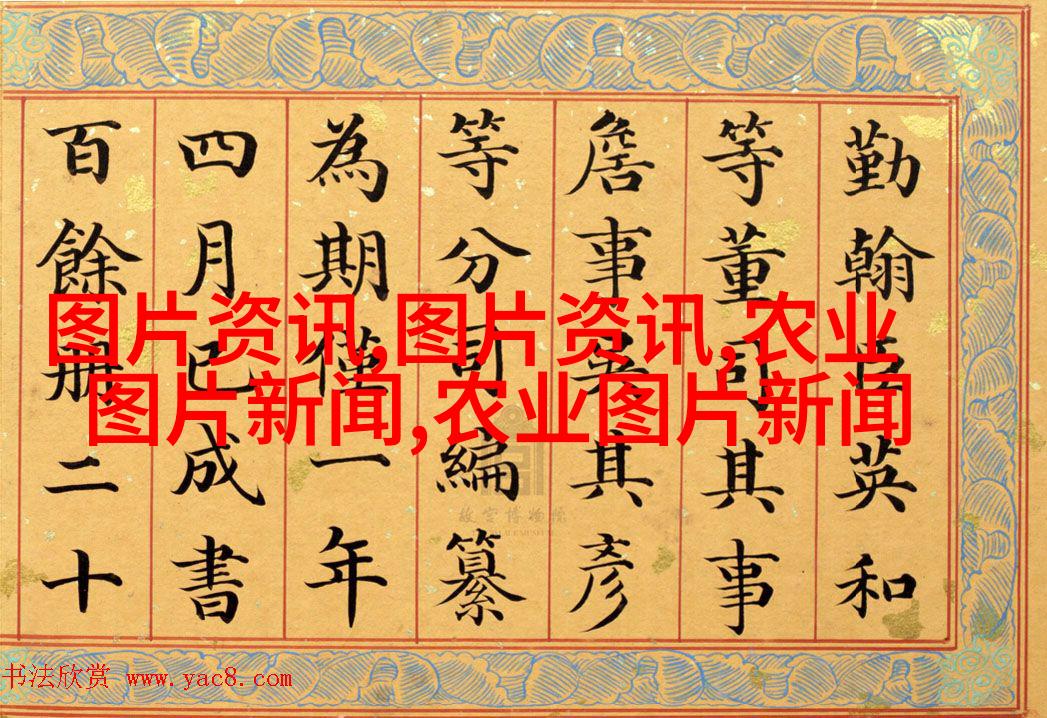 勤翰臣英和
等董司其事
詹事吳其彥
等分司編纂
為期僅一年
四月已成書
百餘冊二十
图片资讯,图片资讯,农业
图片新闻,农业图片新闻
故宫博物院
书法欣赏 www.yac8.com